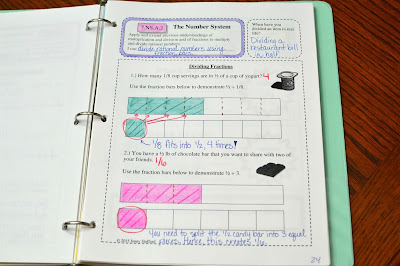 7.NS.A.2
The Number System
Apply and extend previous understandings of
multiplication and division and of fractions to multiply
and divide rational numbers.
I can divide rational numbers using
fraction bars.
When have you
divided an item in real
life?
Dividing a
restaurant bill
in half.
Dividing Fractions
1.) How many 1/8 cup servings are in ½ of a cup of yogurt? 4
Use the fraction bars below to demonstrate ½ ÷ 1/8.
1/8 fits into 1/2, 4 times!
2.) You have a ½ lb of chocolate bar that you want to share with two of
your friends. 1/6
Use the fraction bars below to demonstrate ½ ÷ 3.
You need to split the 1/2 candy bar into 3 equal
pieces. Hence, this creates 1/6.
24